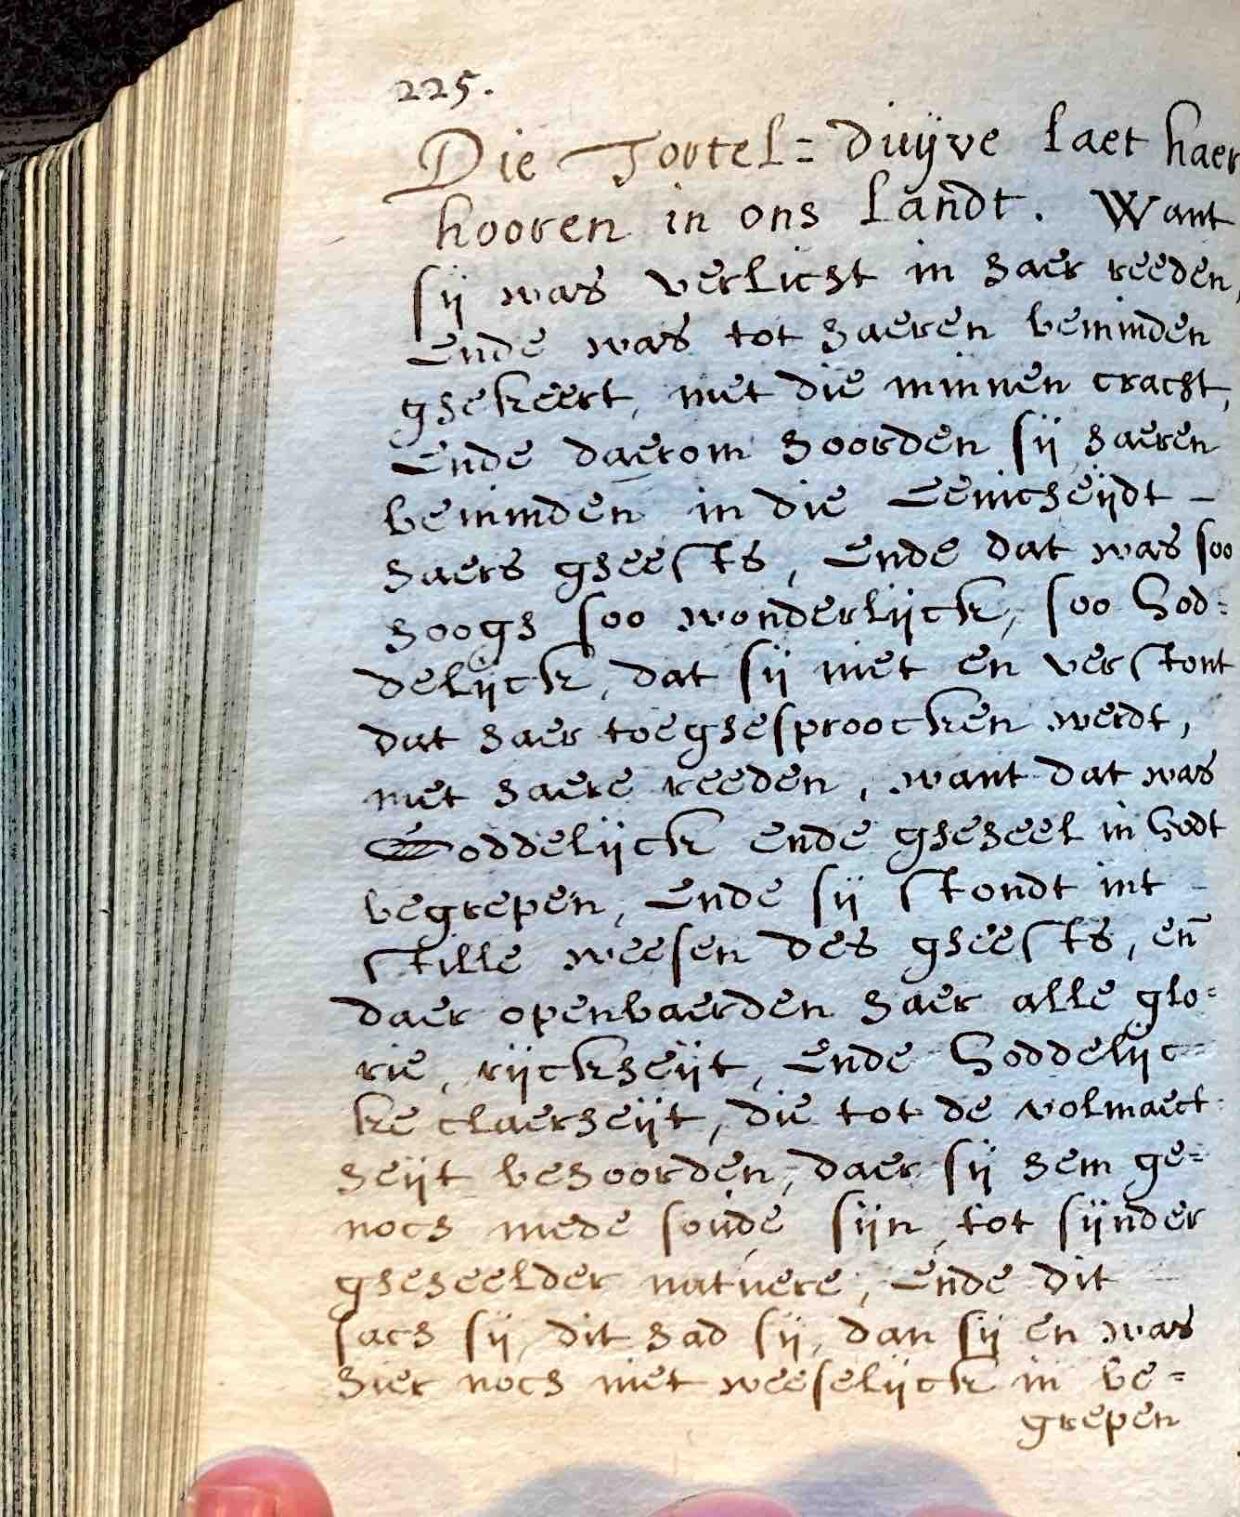 225.
Die Tortel= duijve laet haer
hooren in ons landt. Want
sij was verlicht in haer reeden,
Ende was tot haeren beminden
ghekeert, met die minnen cracht,
Ende daerom hoorden sij haeren
beminden in die Eenicheijdt -
haers gheests, Ende dat was soo
hoogh soo wonderlijck, soo God=
delijck, dat sij niet en verstont
dat haer toeghesproocken werdt,
met haere reeden, want dat was
Goddelijck ende gheheel in Godt
begrepen, Ende sij stondt int -
stille weesen des gheests, en̄
daer openbaerden haer alle glo=
rie, rijckheijt, Ende Goddelijc=
ke claerheijt, die tot de volmaect=
heijt behoorden, daer sij hem ge=
noch mede soude sijn, tot sijnder
gheheelder natuere, Ende dit
sach sij, dit had sij, dan sij en was
hier noch niet weeselijck in be=
grepen